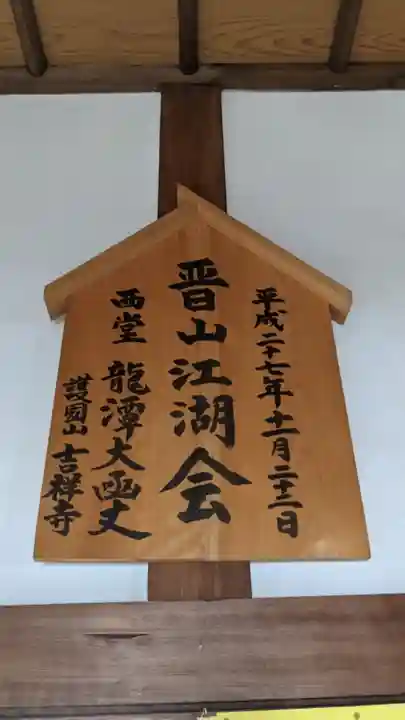 平成二十七年十一月二十二日
晋山江湖会
西堂 龍潭大函丈
護國山 吉祥寺